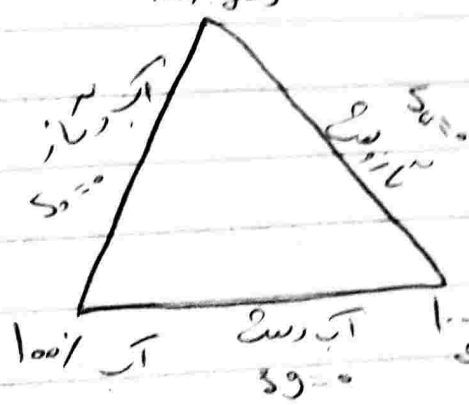 آب و گاز
So=0
گاز و نفت
Sw=0
100% آب
آب و نفت
Sg=0